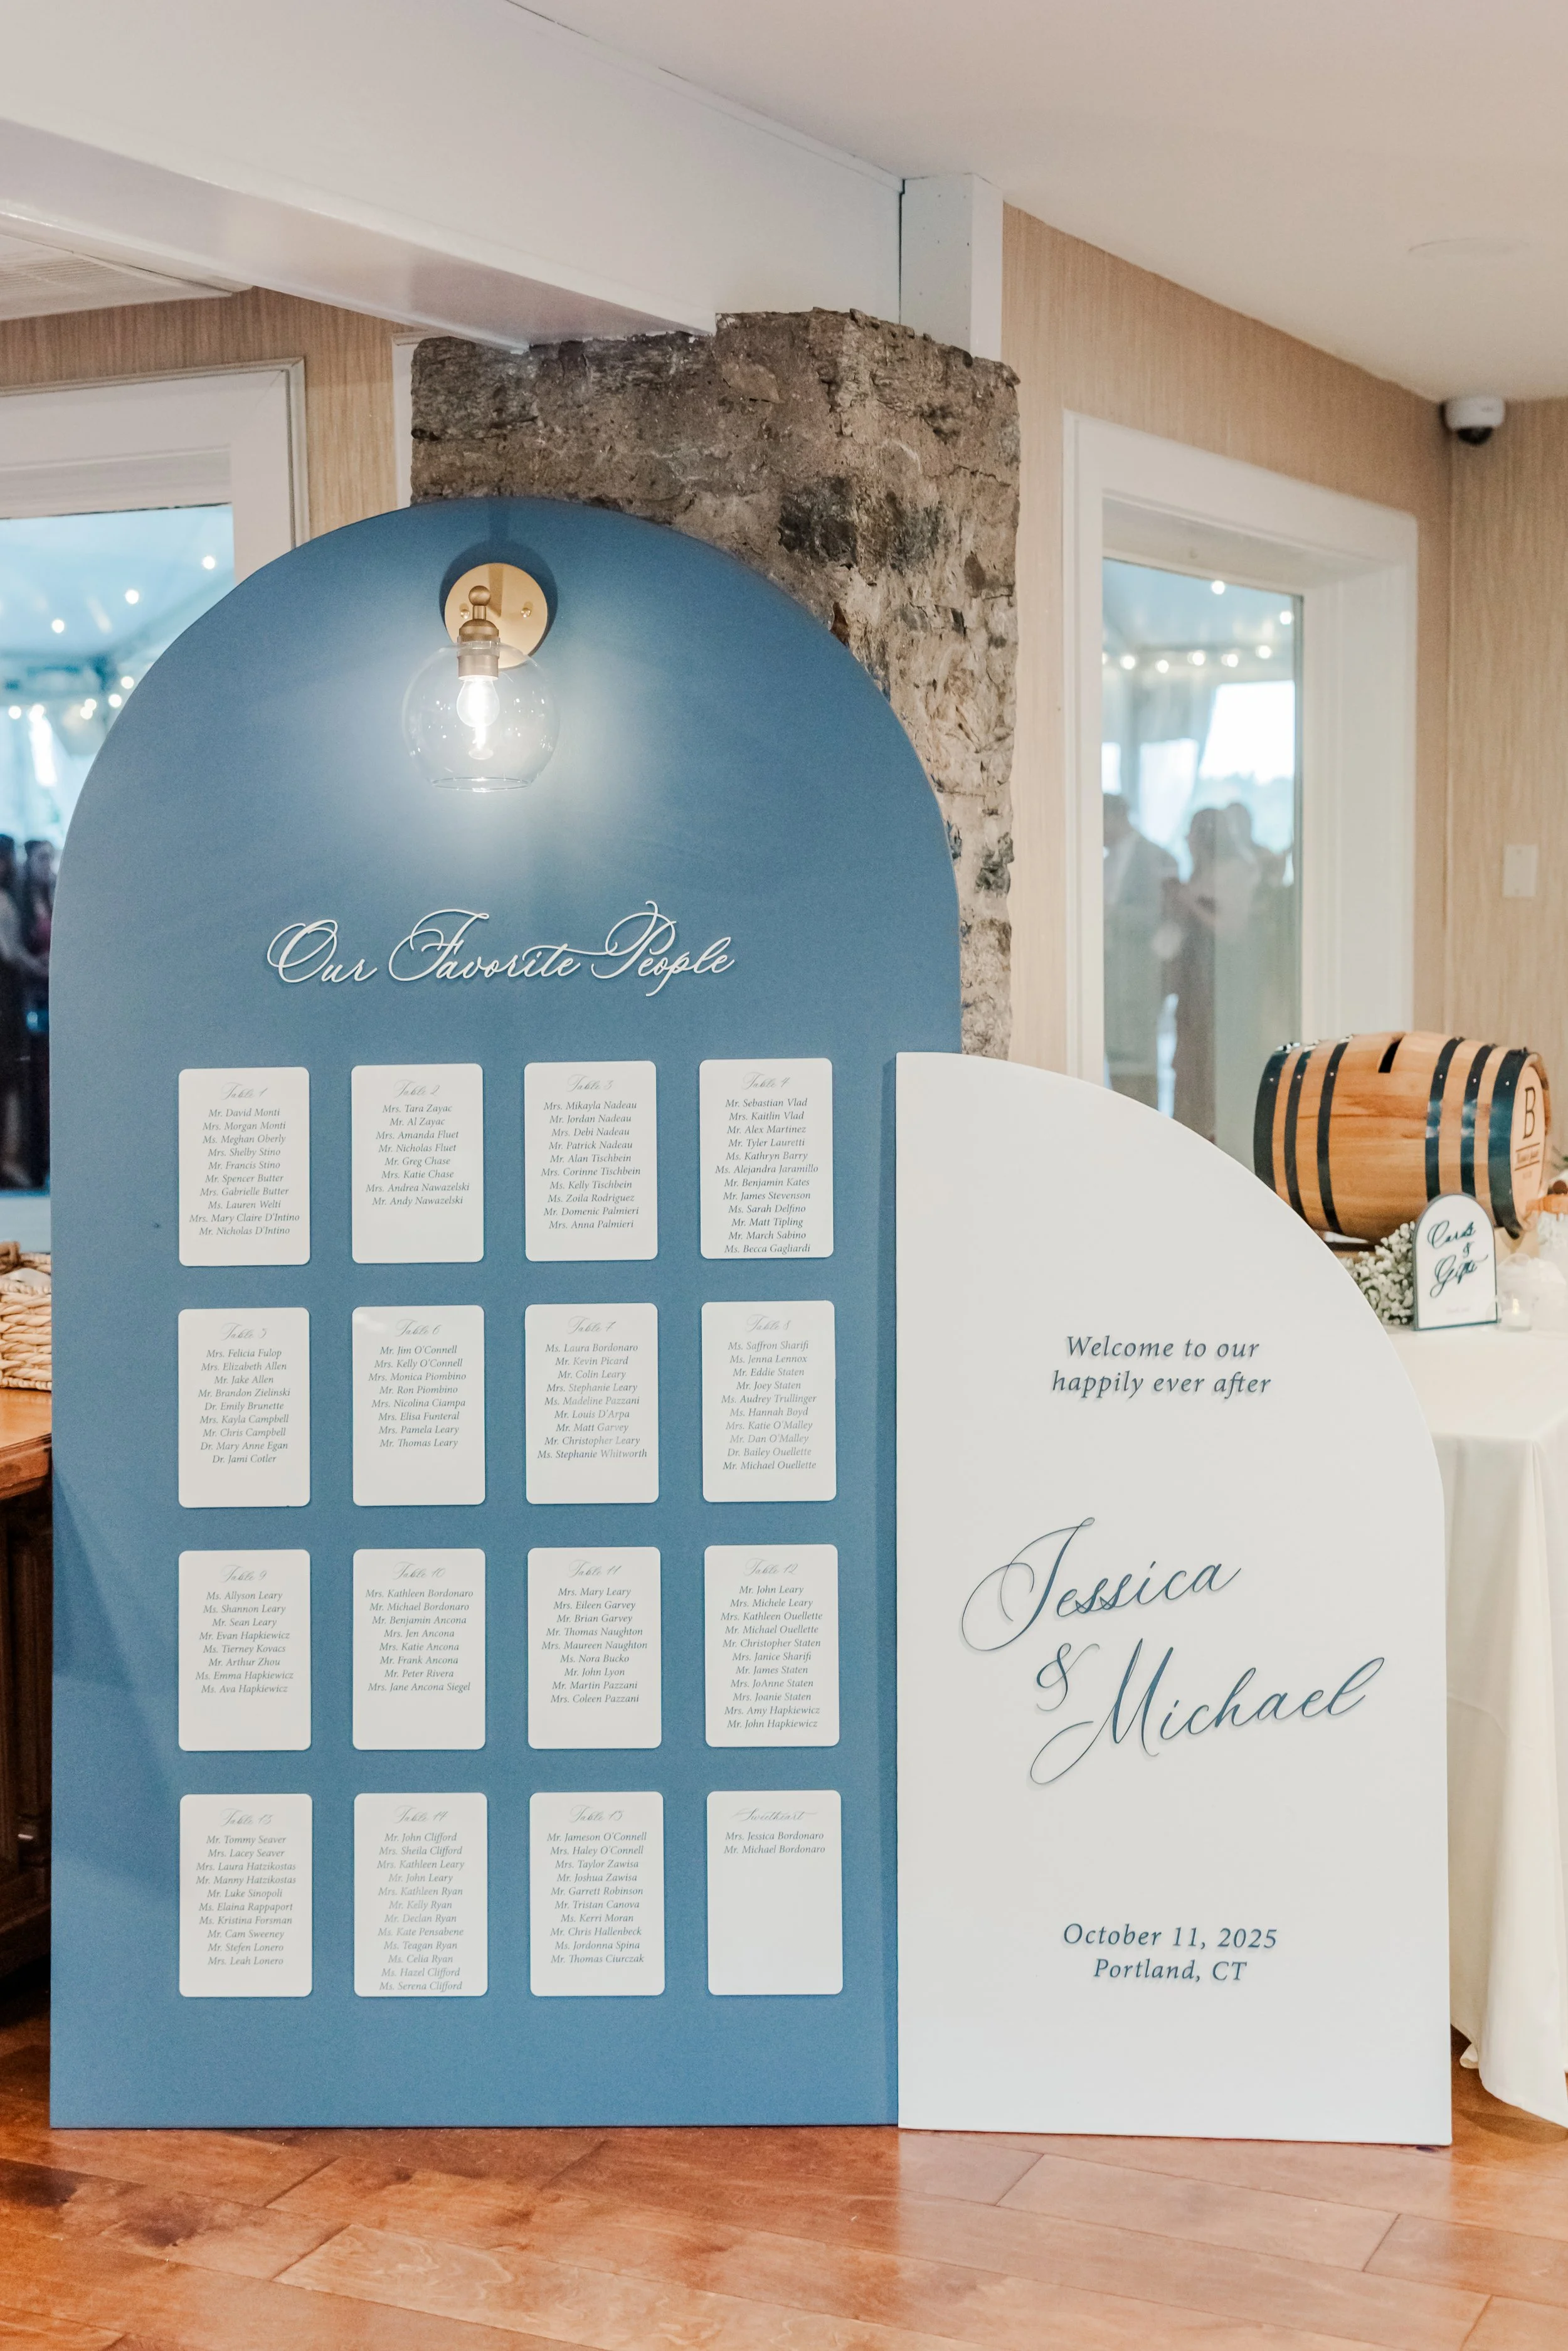 Our Favorite People
Table 1
Mr. David Monti
Mrs. Morgan Monti
Ms. Meghan Oberly
Mrs. Shelby Stino
Mr. Francis Stino
Mr. Spencer Butter
Mrs. Gabrielle Butter
Ms. Lauren Welti
Mrs. Mary Claire D'Intino
Mr. Nicholas D'Intino
Table 2
Mrs. Tara Zayac
Mr. Al Zayac
Mrs. Amanda Fluet
Mr. Nicholas Fluet
Mr. Greg Chase
Mrs. Katie Chase
Mrs. Andrea Nawazelski
Mr. Andy Nawazelski
Table 3
Mrs. Mikayla Nadeau
Mr. Jordan Nadeau
Mrs. Debi Nadeau
Mr. Patrick Nadeau
Mr. Alan Tischbein
Mrs. Corinne Tischbein
Ms. Kelly Tischbein
Ms. Zoila Rodriguez
Mr. Domenic Palmieri
Mrs. Anna Palmieri
Table 4
Mr. Sebastian Vlad
Mrs. Kaitlin Vlad
Mr. Alex Martinez
Mr. Tyler Lauretti
Ms. Kathryn Barry
Ms. Alejandra Jaramillo
Mr. Benjamin Kates
Mr. James Stevenson
Ms. Sarah Delfino
Mr. Matt Tipling
Mr. March Sabino
Ms. Becca Gagliardi
Table 5
Mrs. Felicia Fulop
Mrs. Elizabeth Allen
Mr. Jake Allen
Mr. Brandon Zielinski
Dr. Emily Brunette
Mrs. Kayla Campbell
Mr. Chris Campbell
Dr. Mary Anne Egan
Dr. Jami Cotler
Table 6
Mr. Jim O'Connell
Mrs. Kelly O'Connell
Mrs. Monica Piombino
Mr. Ron Piombino
Mrs. Nicolina Ciampa
Mrs. Elisa Funteral
Mrs. Pamela Leary
Mr. Thomas Leary
Table 7
Ms. Laura Bordonaro
Mr. Kevin Picard
Mr. Colin Leary
Mrs. Stephanie Leary
Ms. Madeline Pazzani
Mr. Louis D'Arpa
Mr. Matt Garvey
Mr. Christopher Leary
Ms. Stephanie Whitworth
Table 8
Ms. Saffron Sharifi
Ms. Jenna Lennox
Mr. Eddie Staten
Mr. Joey Staten
Ms. Audrey Trullinger
Ms. Hannah Boyd
Mrs. Katie O'Malley
Mr. Dan O'Malley
Dr. Bailey Ouellette
Mr. Michael Ouellette
Table 9
Ms. Allyson Leary
Ms. Shannon Leary
Mr. Sean Leary
Mr. Evan Hapkiewicz
Ms. Tierney Kovacs
Mr. Arthur Zhou
Ms. Emma Hapkiewicz
Ms. Ava Hapkiewicz
Table 10
Mrs. Kathleen Bordonaro
Mr. Michael Bordonaro
Mr. Benjamin Ancona
Mrs. Jen Ancona
Mrs. Katie Ancona
Mr. Frank Ancona
Mr. Peter Rivera
Mrs. Jane Ancona Siegel
Table 11
Mrs. Mary Leary
Mrs. Eileen Garvey
Mr. Brian Garvey
Mr. Thomas Naughton
Mrs. Maureen Naughton
Ms. Nora Bucko
Mr. John Lyon
Mr. Martin Pazzani
Mrs. Coleen Pazzani
Table 12
Mr. John Leary
Mrs. Michele Leary
Mrs. Kathleen Ouellette
Mr. Michael Ouellette
Mr. Christopher Staten
Mrs. Janice Sharifi
Mr. James Staten
Mrs. JoAnne Staten
Mrs. Joanie Staten
Mrs. Amy Hapkiewicz
Mr. John Hapkiewicz
Table 13
Mr. Tommy Seaver
Mrs. Lacey Seaver
Mrs. Laura Hatzikostas
Mr. Manny Hatzikostas
Mr. Luke Sinopoli
Ms. Elaina Rappaport
Ms. Kristina Forsman
Mr. Cam Sweeney
Mr. Stefen Lonero
Mrs. Leah Lonero
Table 14
Mr. John Clifford
Mrs. Sheila Clifford
Mrs. Kathleen Leary
Mr. John Leary
Mrs. Kathleen Ryan
Mr. Kelly Ryan
Mr. Declan Ryan
Ms. Kate Pensabene
Ms. Teagan Ryan
Ms. Celia Ryan
Ms. Hazel Clifford
Ms. Serena Clifford
Table 15
Mr. Jameson O'Connell
Mrs. Haley O'Connell
Mrs. Taylor Zawisa
Mr. Joshua Zawisa
Mr. Garrett Robinson
Mr. Tristan Canova
Ms. Kerri Moran
Mr. Chris Hallenbeck
Ms. Jordonna Spina
Mr. Thomas Ciurczak
Sweetheart
Mrs. Jessica Bordonaro
Mr. Michael Bordonaro
Welcome to our
happily ever after
Jessica
&
Michael
October 11, 2025
Portland, CT
B
Cards
&
Gifts